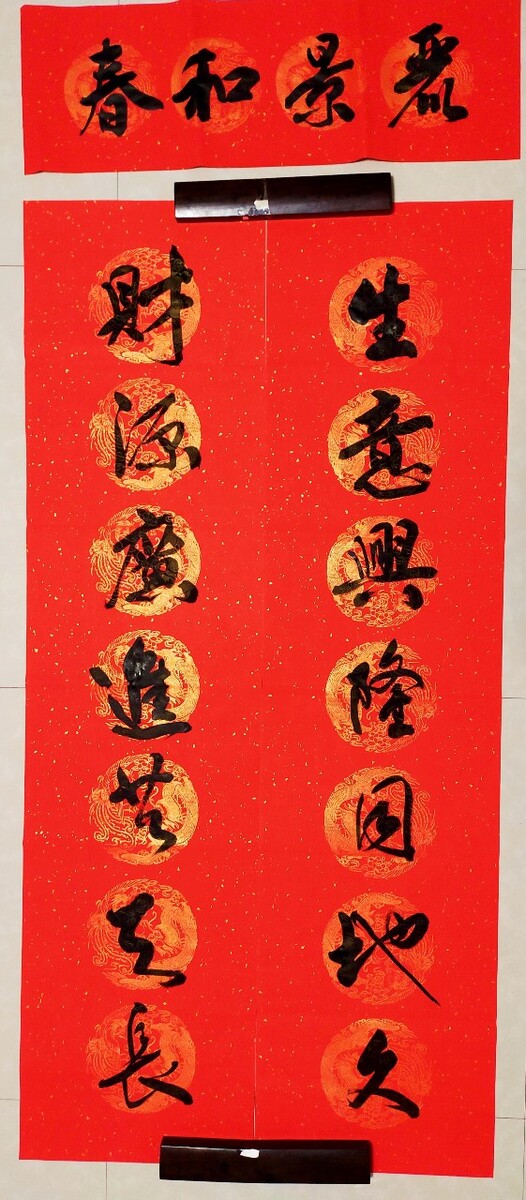 春和景麗
生意興隆同地久
財源廣進共天長